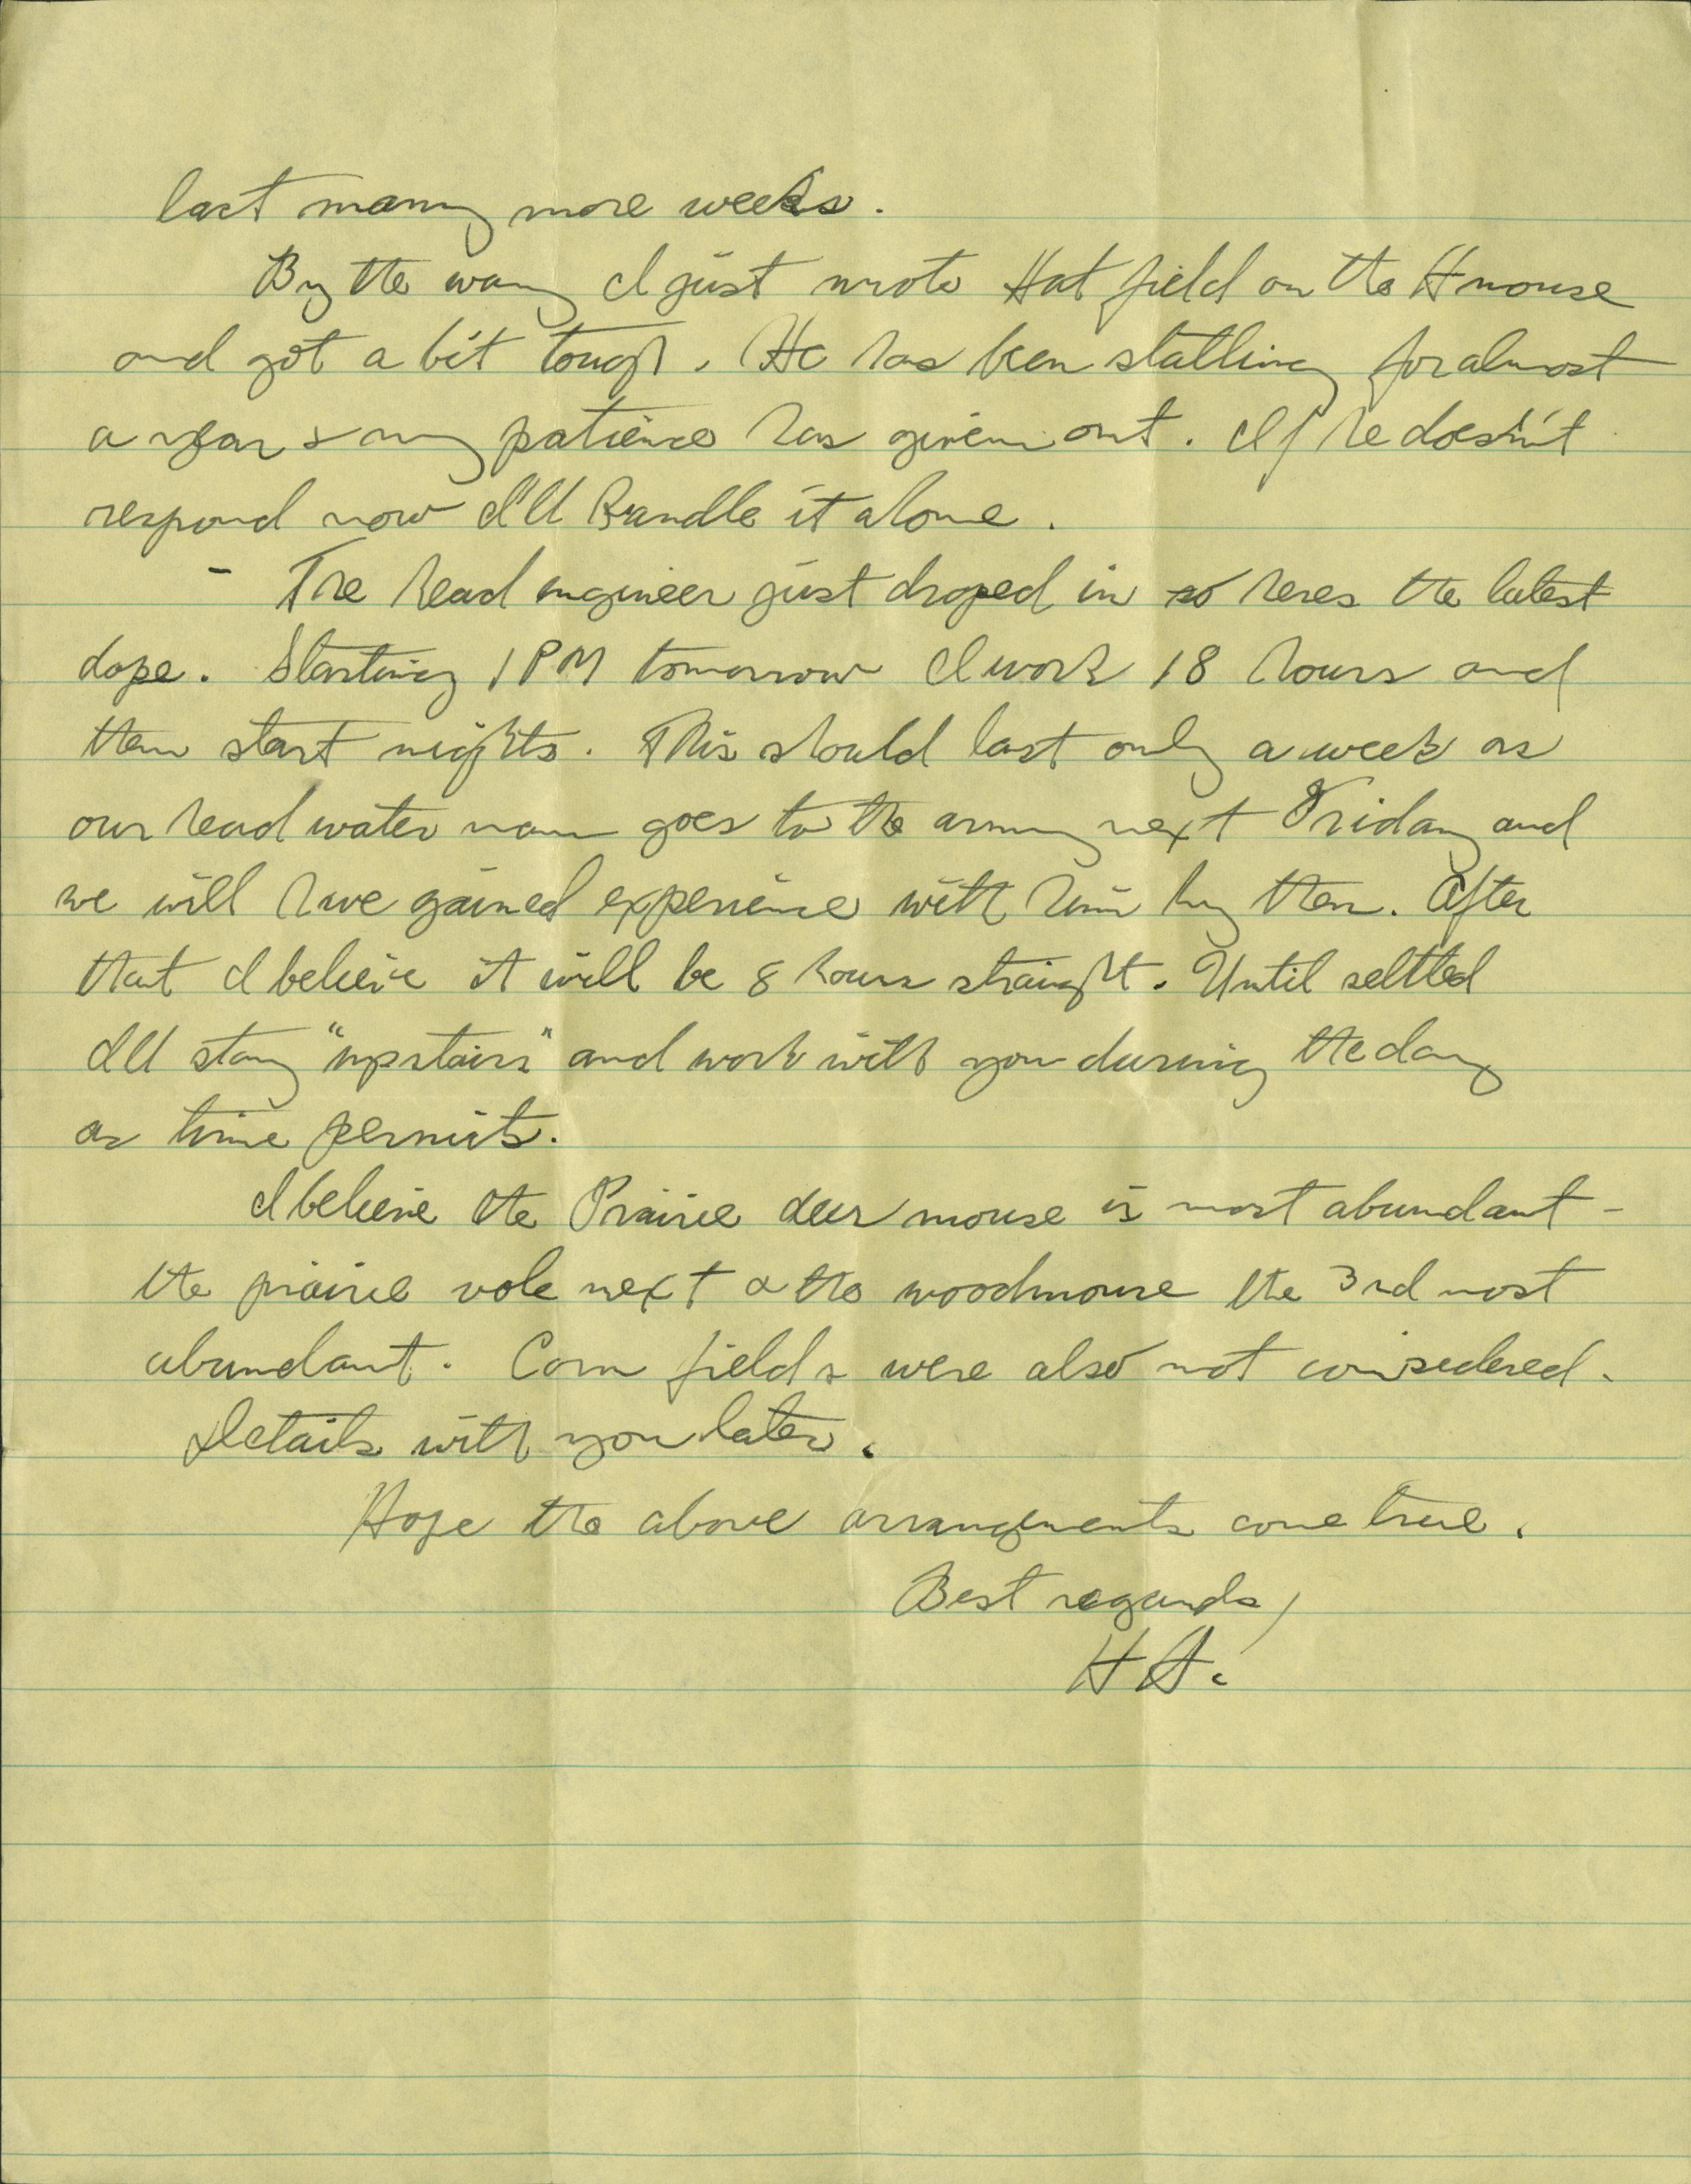 last many more weeks.
By the way I just wrote Hatfield on the H mouse
and got a bit tough. He has been stalling for almost
a year & my patience has given out. If he doesn't
respond now I'll handle it alone.
- The head engineer just droped in so heres the latest
dope. Starting 1 PM tomorrow I work 18 hours and
then start nights. This should last only a week as
our head water man goes to the army next Friday and
we will have gained experience with him by then. After
that I believe it will be 8 hours straight. Until settled
I'll stay "upstairs" and work with you during the day
as time permits.
I believe the Prairie deer mouse is most abundant -
the prairie vole next & the woodmouse the 3rd most
abundant. Corn fields were also not considered.
Details with you later.
Hope the above arrangements come true.
Best regards,
H H.